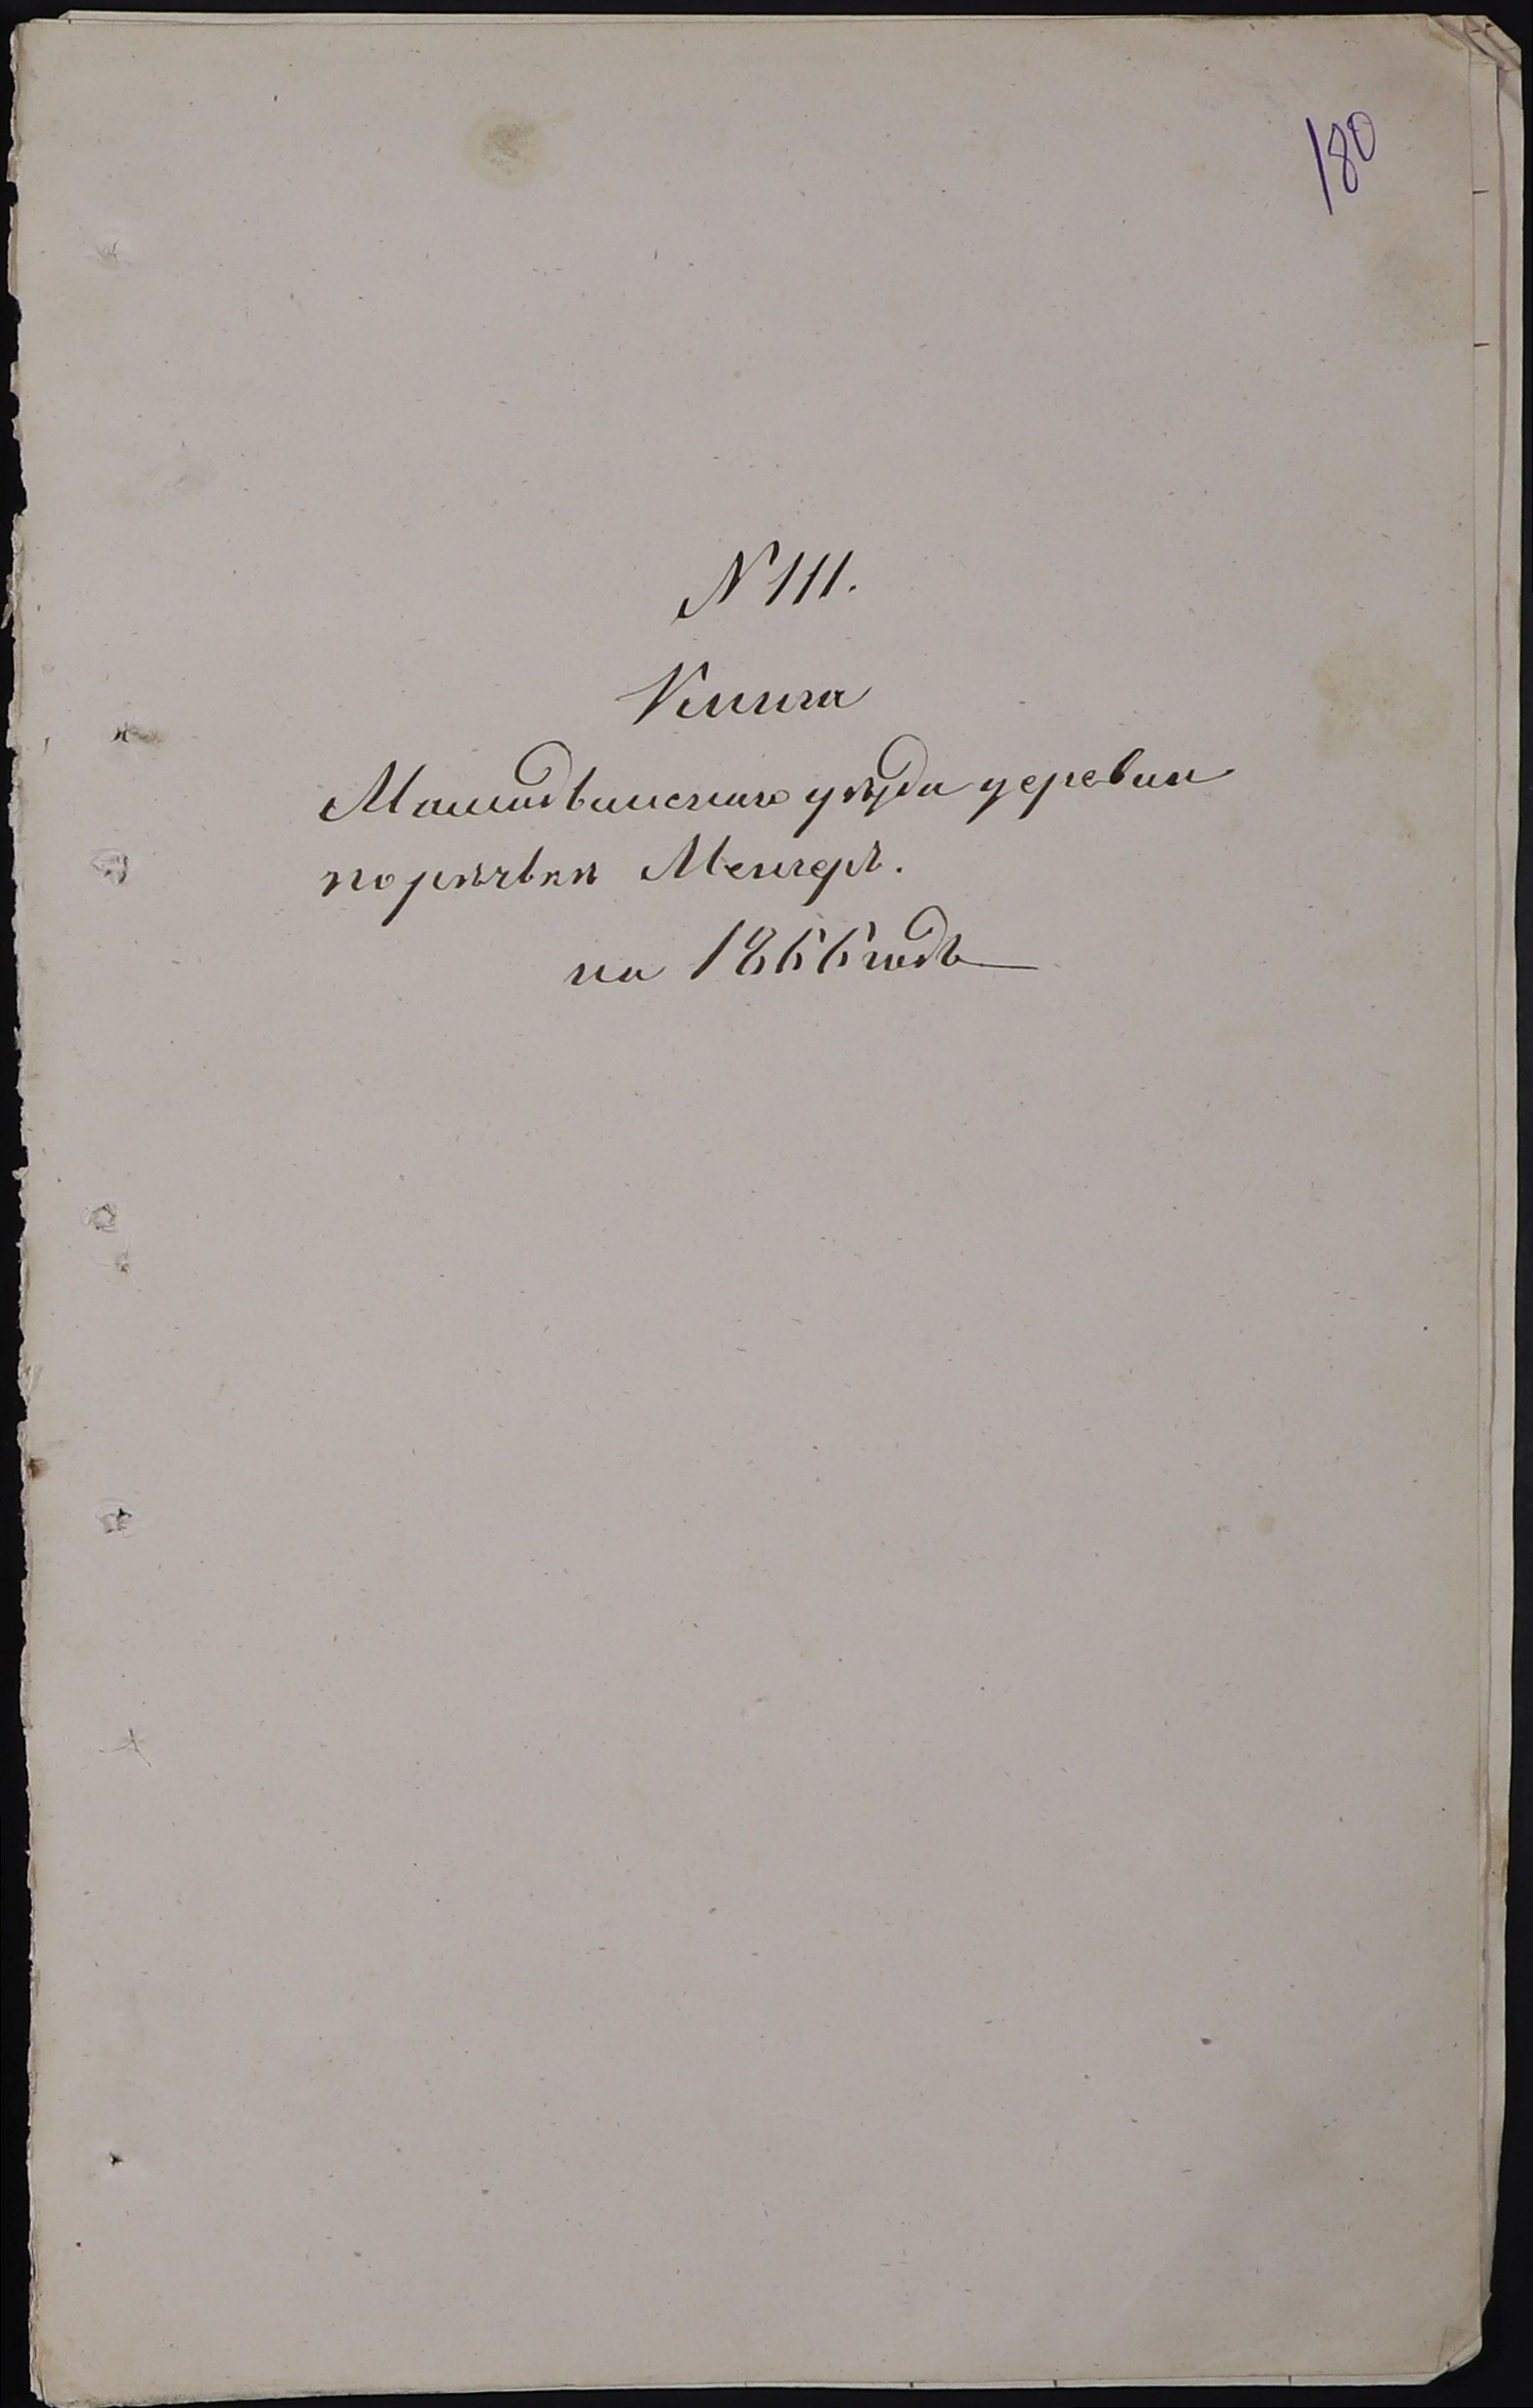 180
N 111.
Книга
Мамадышскаго уѣзда деревни
по рѣчькѣ Менгерь.
на 1866 годъ